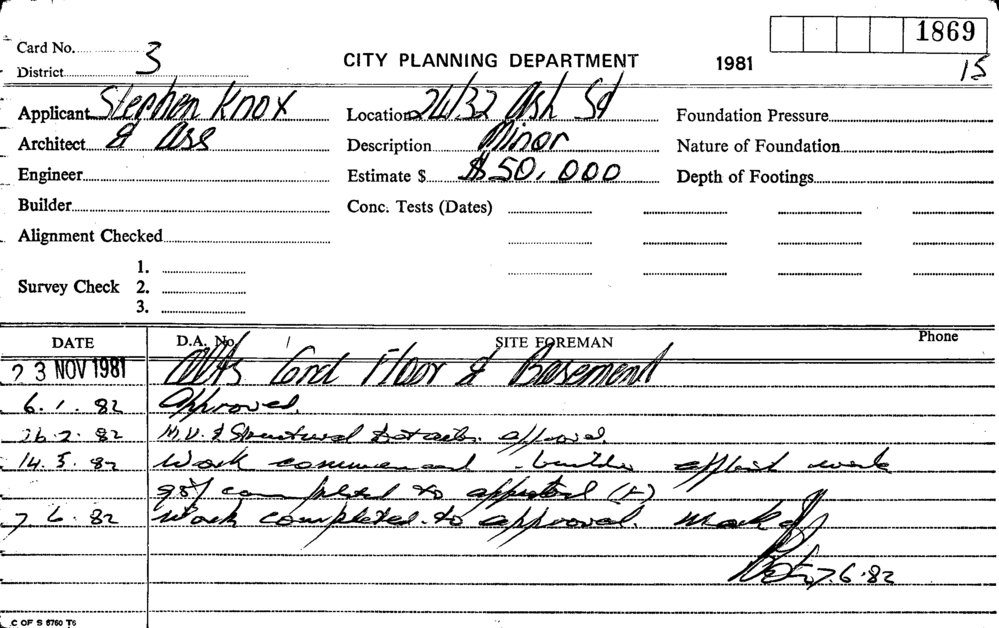 1869
Card No. 3
District
CITY PLANNING DEPARTMENT 1981 15
Applicant Stephen Knox Location 24/32 Ash St Foundation Pressure
Architect & Ass Description Minor Nature of Foundation
Engineer Estimate $ $50,000 Depth of Footings
Builder Conc. Tests (Dates)
Alignment Checked
1.
Survey Check 2.
3.
DATE D.A. No. SITE FOREMAN Phone
23 NOV 1981 Alts Grd Floor & Basement
6.1.82 Approved.
26.2.82 M.V. & Structural details. approved.
14.5.82 Work commenced - builder work
completed to
7.6.82 Work completed to approval.
7.6.82
C OF S 6760 T6